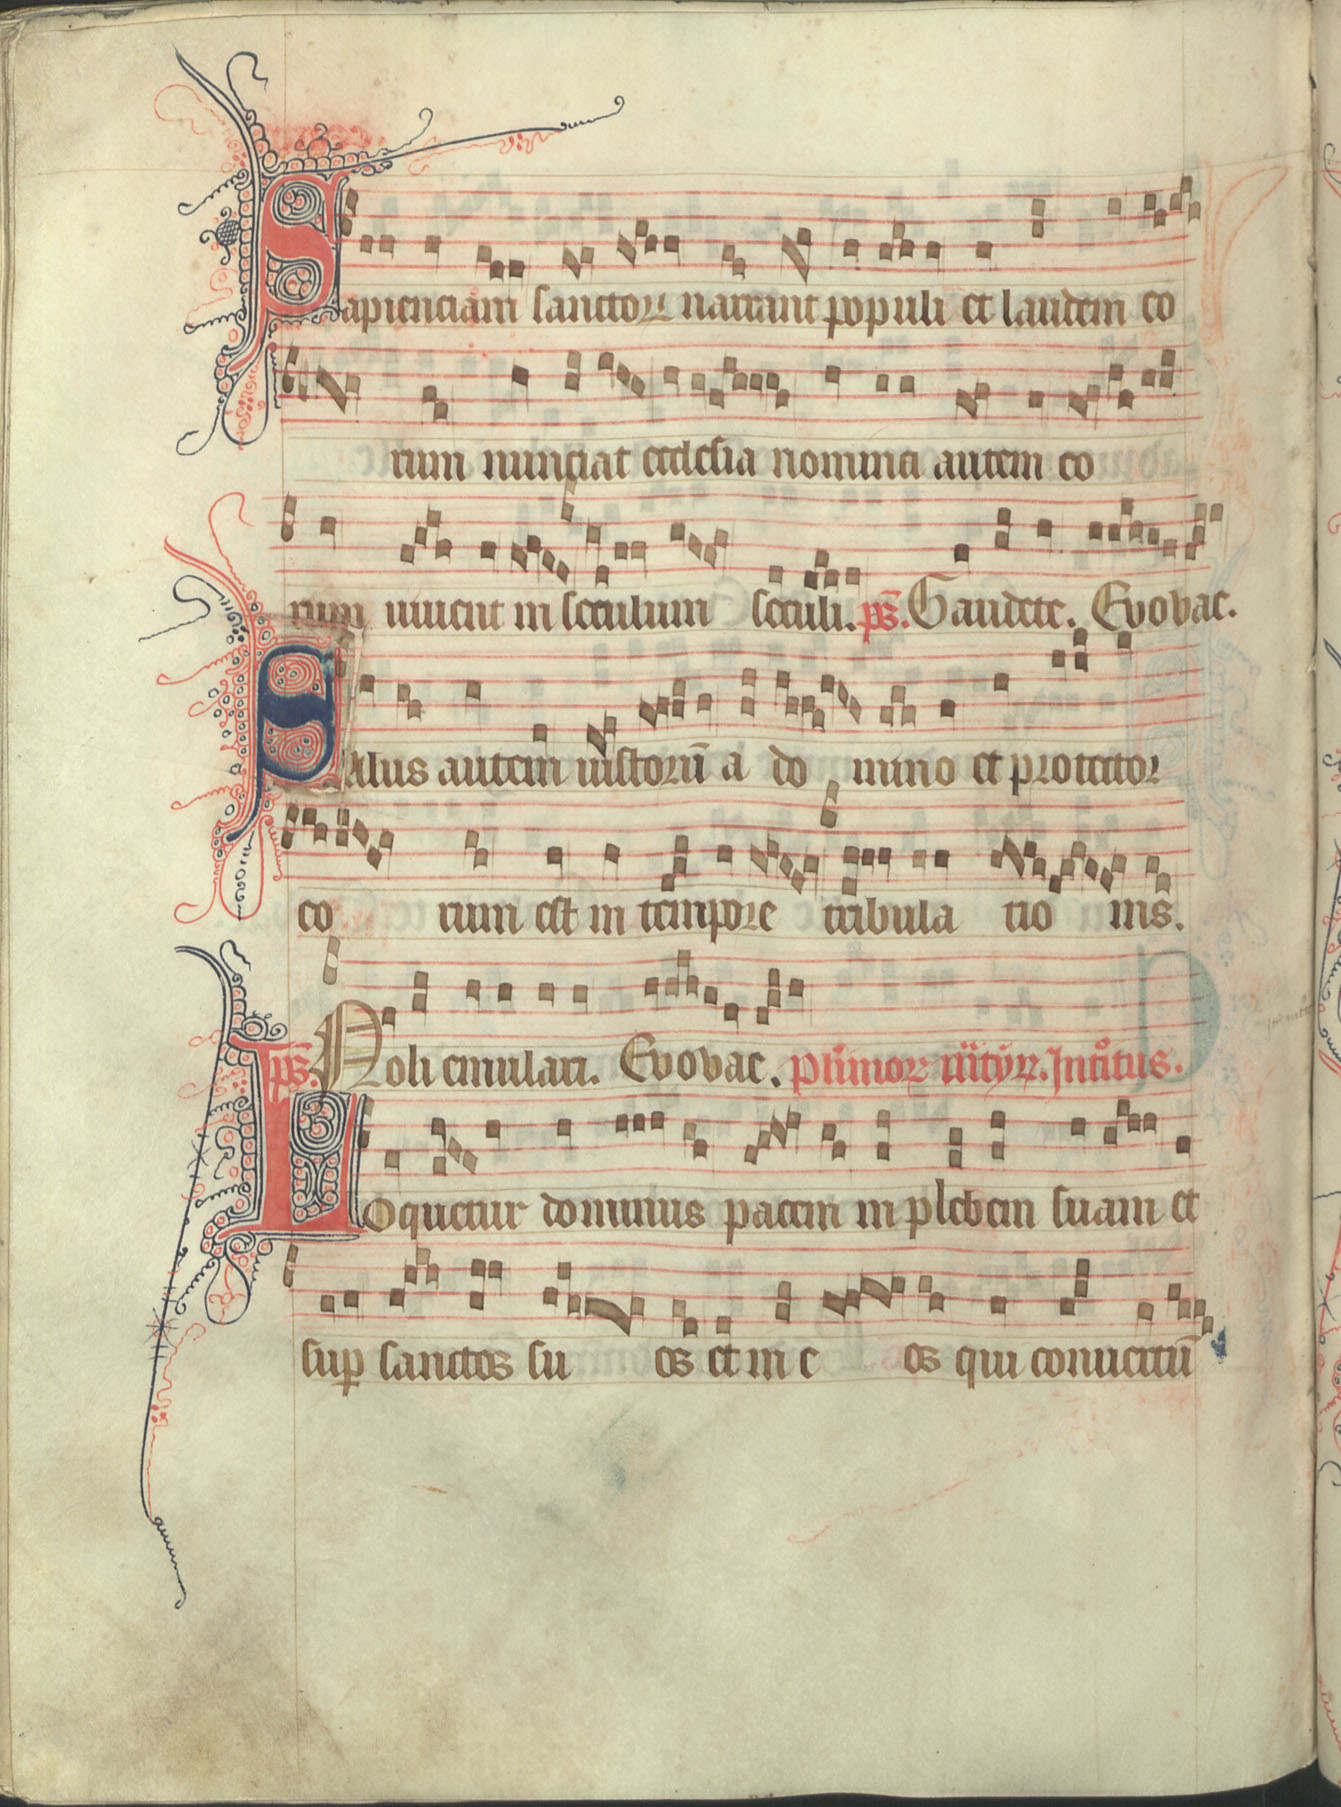 Sapienciam sanctoꝝ narrant populi et laudem eo
rum nunciat ecclesia nomina autem eo
rum uiuent in seculum seculi. p̄s. Gaudete. Evovae.
Salus autem iustorū a do mino et protector
eo rum est in tempore tribula tio nis.
p̄s. Noli emulari. Evovae. plimoꝝ mr̄tyꝝ. Introitus.
Loquetur dominus pacem in plebem suam et
suꝑ sanctos su os et in e os qui conuertū